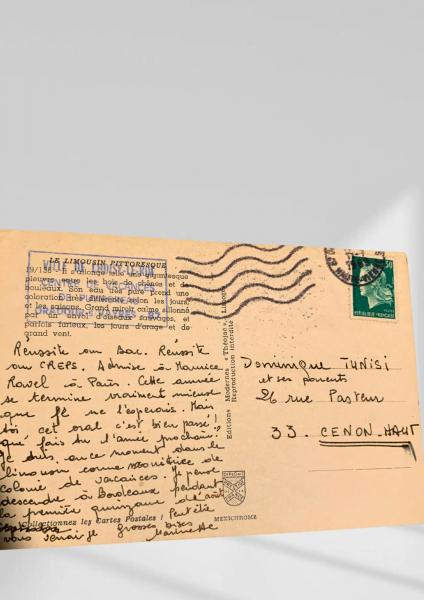 LE LIMOUSIN PITTORESQUE
19/138 - Il s'allonge telle une gigantesque
pieuvre, sous les bois de chênes et de
bouleaux. Son eau très pure prend une
coloration très différente selon les jours,
et les saisons. Grand miroir calme sillonné
par un envol d'oiseaux sauvages, et
parfois furieux, les jours d'orage et de
grand vent.
VILLE DE CHOISY-LE-ROI
CENTRE DE VACANCES
DE
ORADOUR S/VAYRES 87
50
REPUBLIQUE FRANÇAISE
Réussite au Bac. Réussite
au CREPS. Admise à Maurice
Ravel à Paris. Cette année
se termine vraiment mieux
que je ne l'espérais. Mais
toi cet oral c'est bien passé ?
que fais tu l'année prochaine ?
Je suis en ce moment dans le
limousin comme monitrice de
colonie de vacances. Je pense
descendre à Bordeaux pendant
la première quinzaine d'août
Peut être
vous verrai je grosses bises
Collectionnez les Cartes Postales !
Editions Modernes « Théojac », Limoges
Reproduction interdite
MEXICHROME
Dominique TUNISI
et ses parents
26 rue Pasteur
33. CENON-HAUT